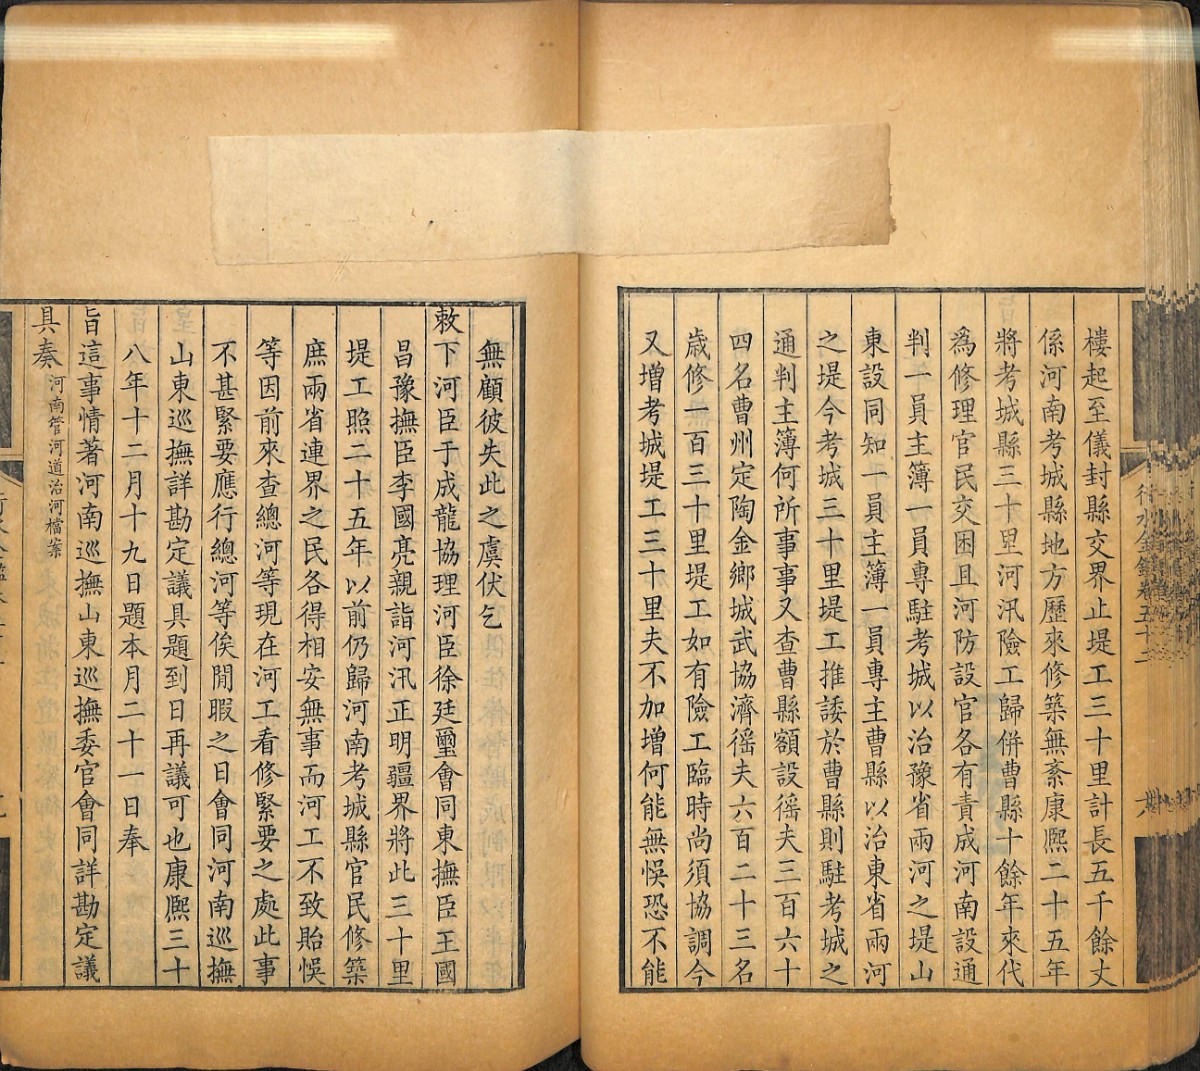 樓起至儀封縣交界止堤工三十里計長五千餘丈
係河南考城縣地方歷來修築無紊康熙二十五年
將考城縣三十里河汛險工歸併曹縣十餘年來代
為修理官民交困且河防設官各有責成河南設通
判一員主簿一員專駐考城以治豫省兩河之堤山
東設同知一員主簿一員專主曹縣以治東省兩河
之堤今考城三十里堤工推諉於曹縣則駐考城之
通判主簿何所事事又查曹縣額設徭夫三百六十
四名曹州定陶金鄉城武協濟徭夫六百二十三名
歲修一百三十里堤工如有險工臨時尚須協調今
又增考城堤工三十里夫不加增何能無悞恐不能
無顧彼失此之虞伏乞
敕下河臣于成龍協理河臣徐廷璽會同東撫臣王國
昌豫撫臣李國亮親詣河汛正明疆界將此三十里
堤工照二十五年以前仍歸河南考城縣官民修築
庶兩省連界之民各得相安無事而河工不致貽悞
等因前來查總河等現在河工看修緊要之處此事
不甚緊要應行總河等俟閒暇之日會同河南巡撫
山東巡撫詳勘定議具題到日再議可也康熙三十
八年十二月十九日題本月二十一日奉
旨這事情著河南巡撫山東巡撫委官會同詳勘定議
具奏河南管河道治河檔案